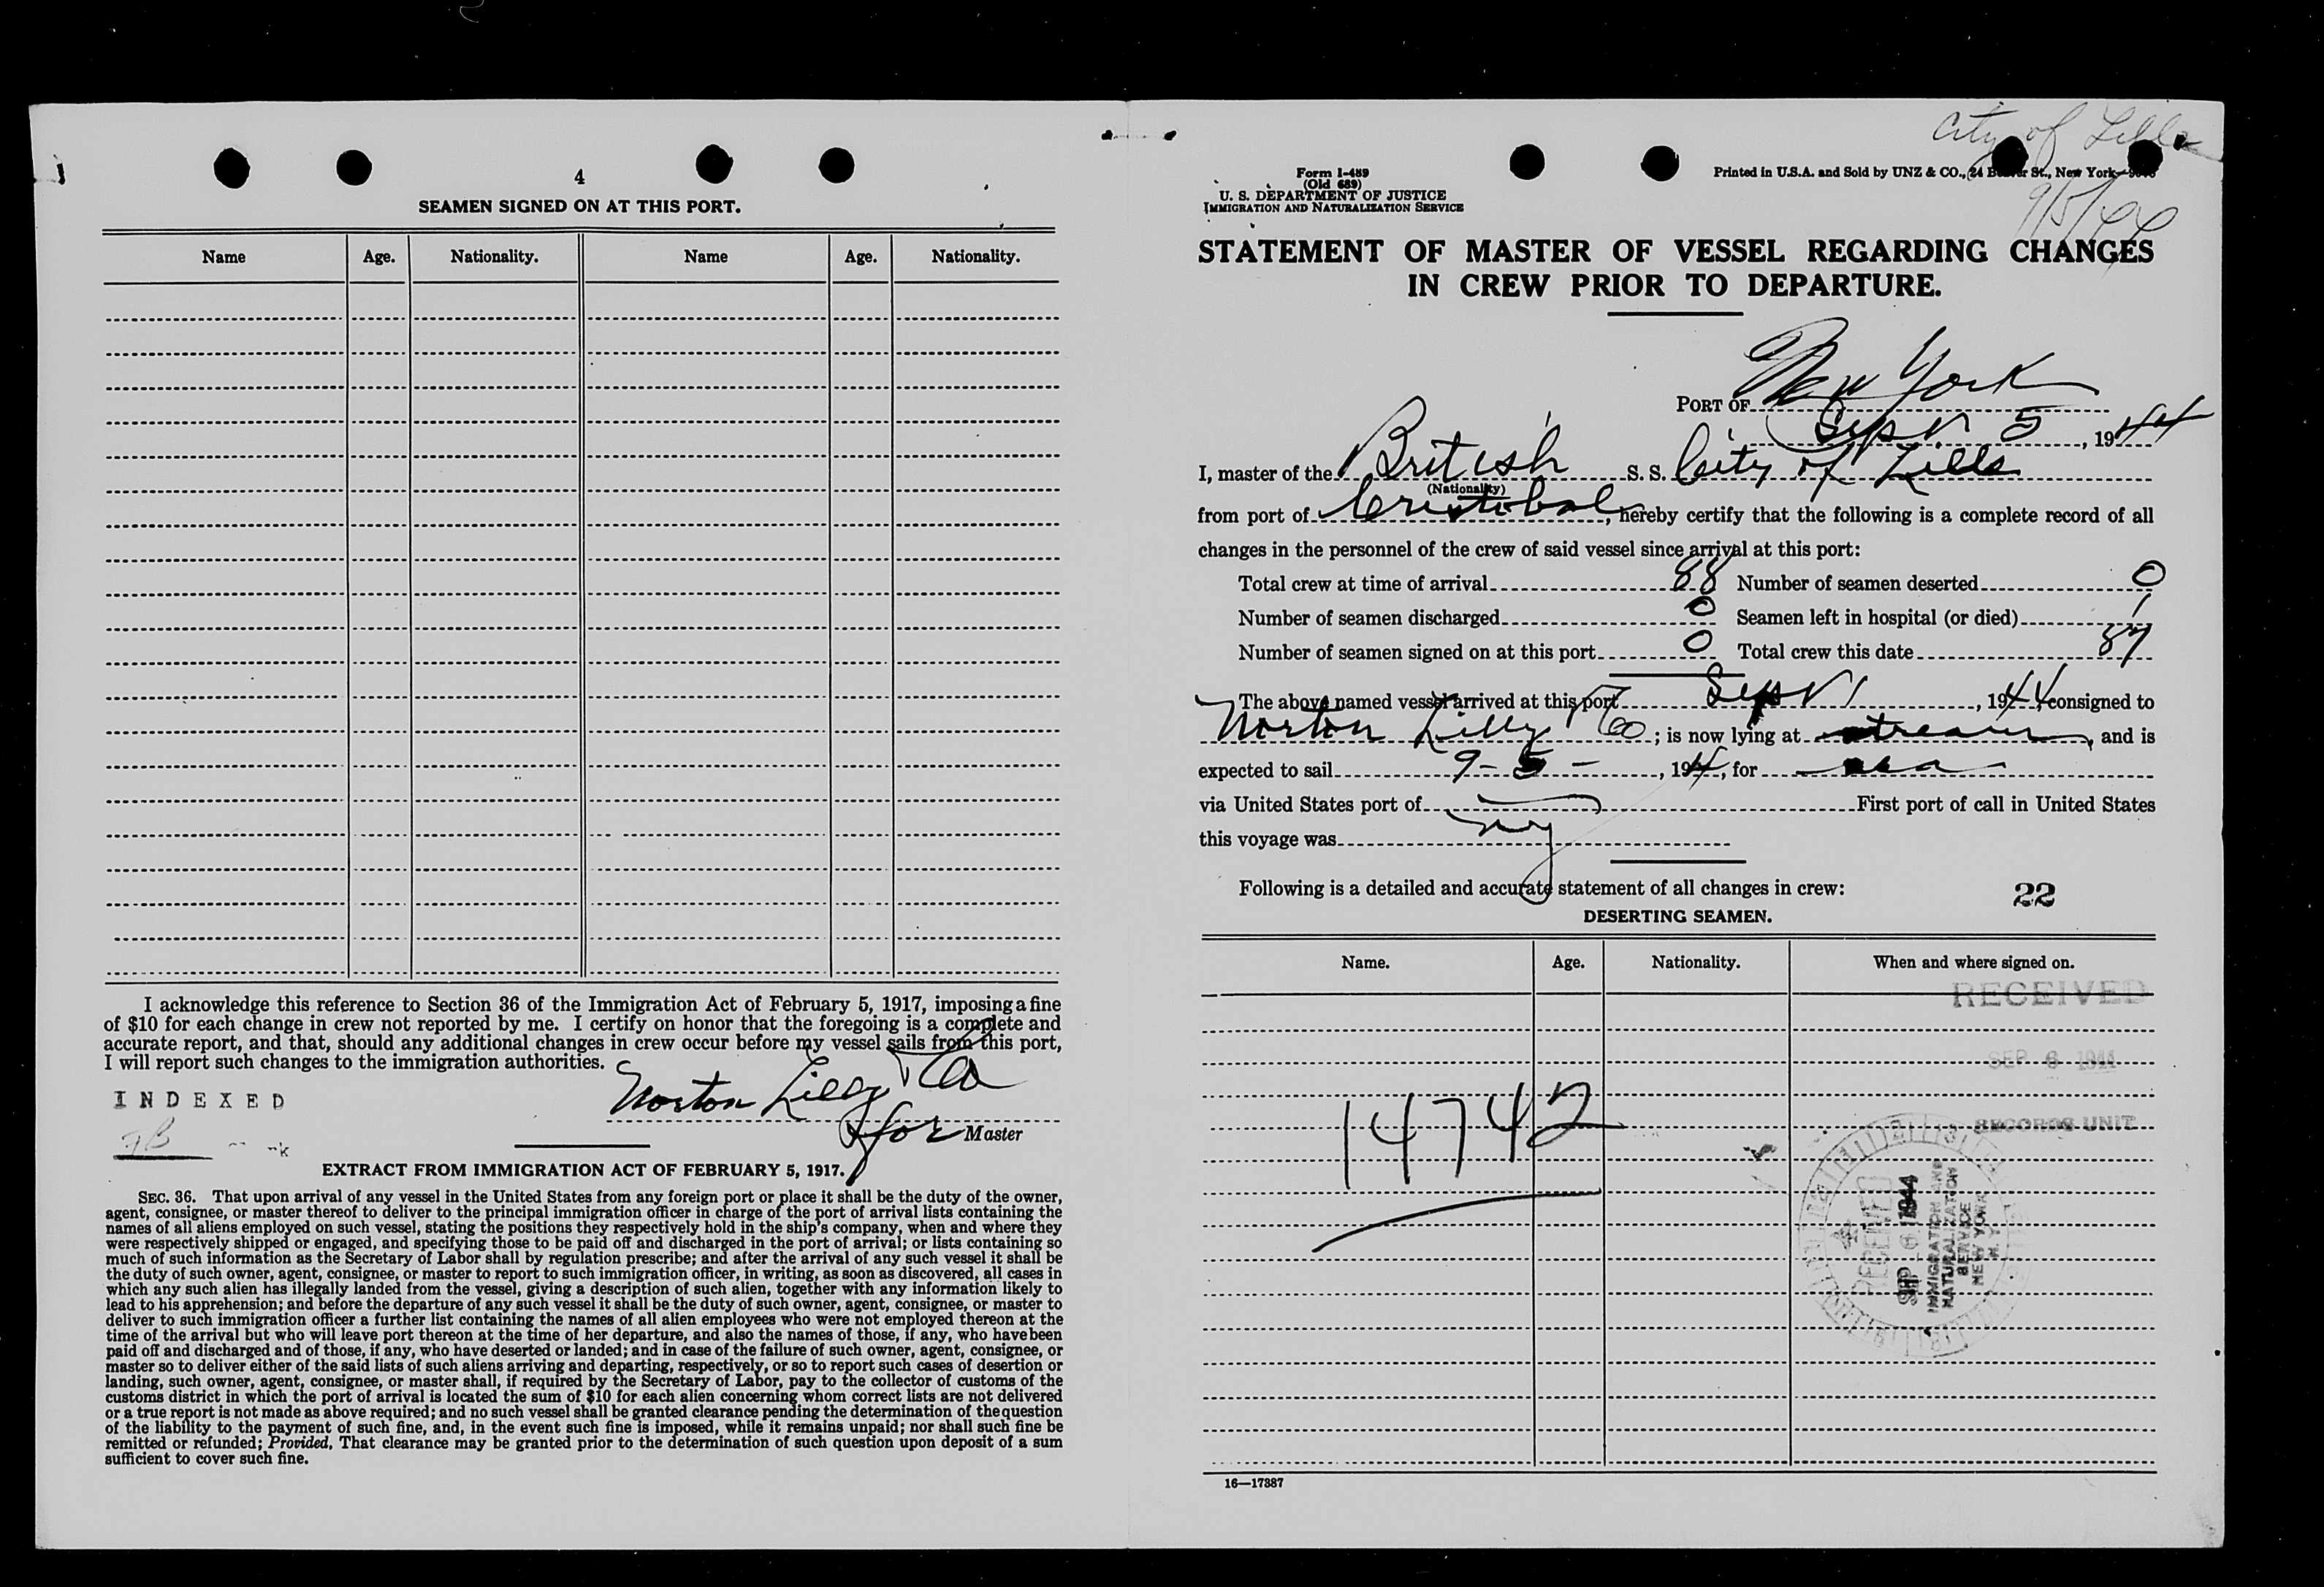 4
SEAMEN SIGNED ON AT THIS PORT.
Name Age. Nationality. Name Age. Nationality.
I acknowledge this reference to Section 36 of the Immigration Act of February 5, 1917, imposing a fine
of $10 for each change in crew not reported by me. I certify on honor that the foregoing is a complete and
accurate report, and that, should any additional changes in crew occur before my vessel sails from this port,
I will report such changes to the immigration authorities.
Norton Lilly & Co
INDEXED
for Master
EXTRACT FROM IMMIGRATION ACT OF FEBRUARY 5, 1917.
SEC. 36. That upon arrival of any vessel in the United States from any foreign port or place it shall be the duty of the owner,
agent, consignee, or master thereof to deliver to the principal immigration officer in charge of the port of arrival lists containing the
names of all aliens employed on such vessel, stating the positions they respectively hold in the ship's company, when and where they
were respectively shipped or engaged, and specifying those to be paid off and discharged in the port of arrival; or lists containing so
much of such information as the Secretary of Labor shall by regulation prescribe; and after the arrival of any such vessel it shall be
the duty of such owner, agent, consignee, or master to report to such immigration officer, in writing, as soon as discovered, all cases in
which any such alien has illegally landed from the vessel, giving a description of such alien, together with any information likely to
lead to his apprehension; and before the departure of any such vessel it shall be the duty of such owner, agent, consignee, or master to
deliver to such immigration officer a further list containing the names of all alien employees who were not employed thereon at the
time of the arrival but who will leave port thereon at the time of her departure, and also the names of those, if any, who have been
paid off and discharged and of those, if any, who have deserted or landed; and in case of the failure of such owner, agent, consignee, or
master so to deliver either of the said lists of such aliens arriving and departing, respectively, or so to report such cases of desertion or
landing, such owner, agent, consignee, or master shall, if required by the Secretary of Labor, pay to the collector of customs of the
customs district in which the port of arrival is located the sum of $10 for each alien concerning whom correct lists are not delivered
or a true report is not made as above required; and no such vessel shall be granted clearance pending the determination of the question
of the liability to the payment of such fine, and, in the event such fine is imposed, while it remains unpaid; nor shall such fine be
remitted or refunded; Provided, That clearance may be granted prior to the determination of such question upon deposit of a sum
sufficient to cover such fine.
City of Lille
9/5/44
Form I-489
(Old 689)
U. S. DEPARTMENT OF JUSTICE
IMMIGRATION AND NATURALIZATION SERVICE
Printed in U.S.A. and Sold by UNZ & CO., 24 Beaver St., New York
STATEMENT OF MASTER OF VESSEL REGARDING CHANGES
IN CREW PRIOR TO DEPARTURE.
PORT OF New York
Sept 5, 1944
I, master of the British S. S. City of Lille
(Nationality)
from port of Cristobal, hereby certify that the following is a complete record of all
changes in the personnel of the crew of said vessel since arrival at this port:
Total crew at time of arrival 88 Number of seamen deserted 0
Number of seamen discharged 0 Seamen left in hospital (or died) 1
Number of seamen signed on at this port 0 Total crew this date 87
The above named vessel arrived at this port Sept 1, 1944, consigned to
Norton Lilly & Co; is now lying at stream, and is
expected to sail 9-5-, 194, for sea
via United States port of First port of call in United States
this voyage was NY
Following is a detailed and accurate statement of all changes in crew:
22
DESERTING SEAMEN.
Name. Age. Nationality. When and where signed on.
RECEIVED
SEP 6 1944
RECORDS UNIT
14742
RECEIVED
SEP 6 1944
IMMIGRATION AND
NATURALIZATION
SERVICE
NEW YORK
N.Y.
16—17387